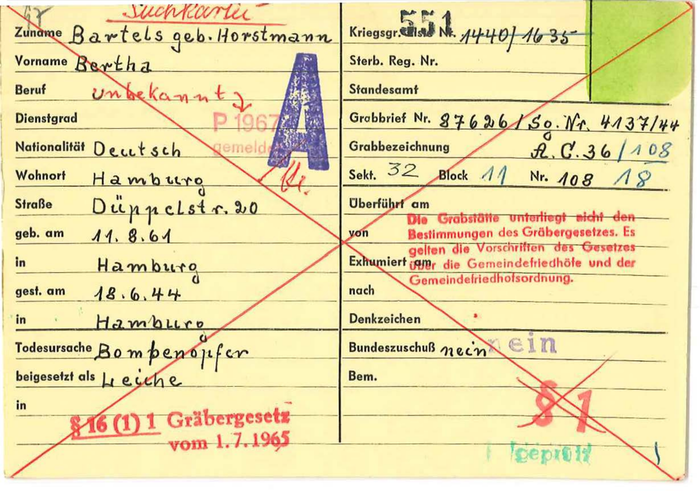 Suchkartei
Zuname Bartels geb. Horstmann
Vorname Bertha
Beruf unbekannt
Dienstgrad
P 1967
gemeldet
A
Nationalität Deutsch
Wohnort Hamburg
Straße Düppelstr. 20
geb. am 11.8.61
in Hamburg
gest. am 18.6.44
in Hamburg
Todesursache Bombenopfer
beigesetzt als Leiche
in
§ 16 (1) 1 Gräbergesetz
vom 1.7.1965
551
Kriegsgr. Nr. 1440/1635
Sterb. Reg. Nr.
Standesamt
Grabbrief Nr. 87626/So.Nr. 4137/44
Grabbezeichnung A.C.36/108
Sekt. 32 Block 11 Nr. 108 18
Überführt am
von
Die Grabstätte unterliegt nicht den
Bestimmungen des Gräbergesetzes. Es
gelten die Vorschriften des Gesetzes
über die Gemeindefriedhöfe und der
Gemeindefriedhofsordnung.
Exhumiert am
nach
in
Denkzeichen
Bundeszuschuß nein nein
Bem.
§ 1
geprüft